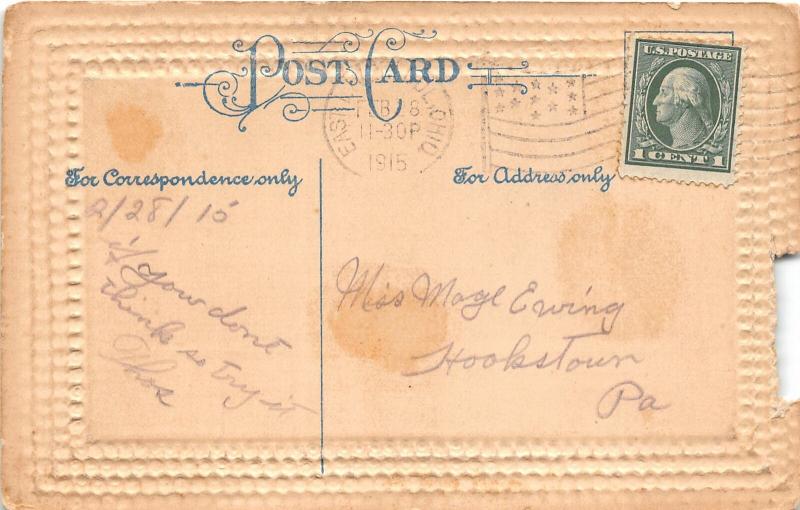 POST CARD
U.S. POSTAGE
1 CENT 1
EAST L, OHIO
FEB 8
11-30P
1915
For Correspondence only
For Address only
2/28/15
if you dont
think so try it
Thos
Miss Mage Ewing
Hookstown
Pa